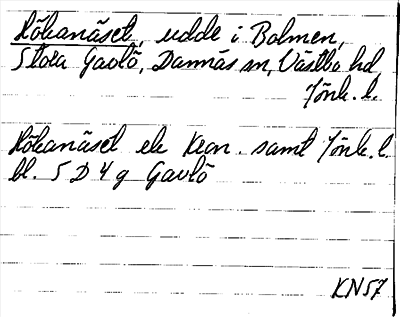 Hökanäset, udde i Bolmen,
Stora Gavlö, Dannäs sn, Västbo hd
Jönk. l.
Hökanäset ek Kron. samt Jönk. l.
bl. 5 D 4 g Gavlö
KN57